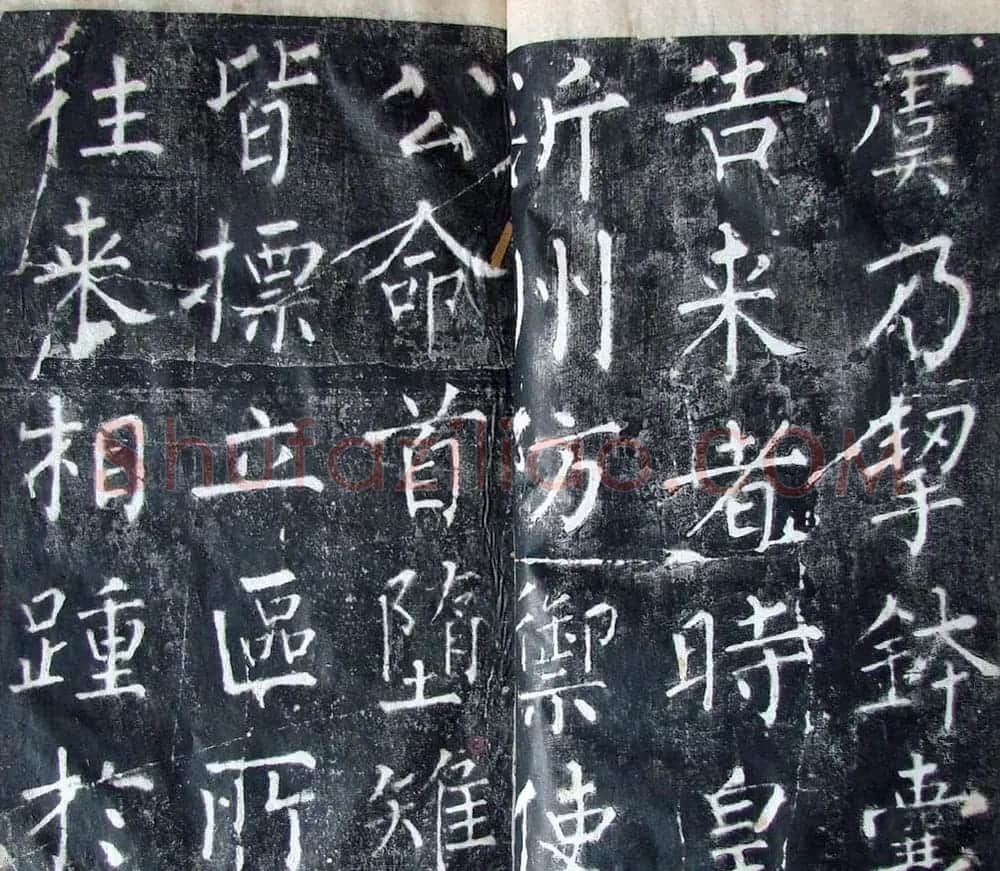 虞乃挈鉢囊
告来者時皇
沂州防禦使
公命首墮雉
皆標立區所
往来相踵於
shufaziliao.COM